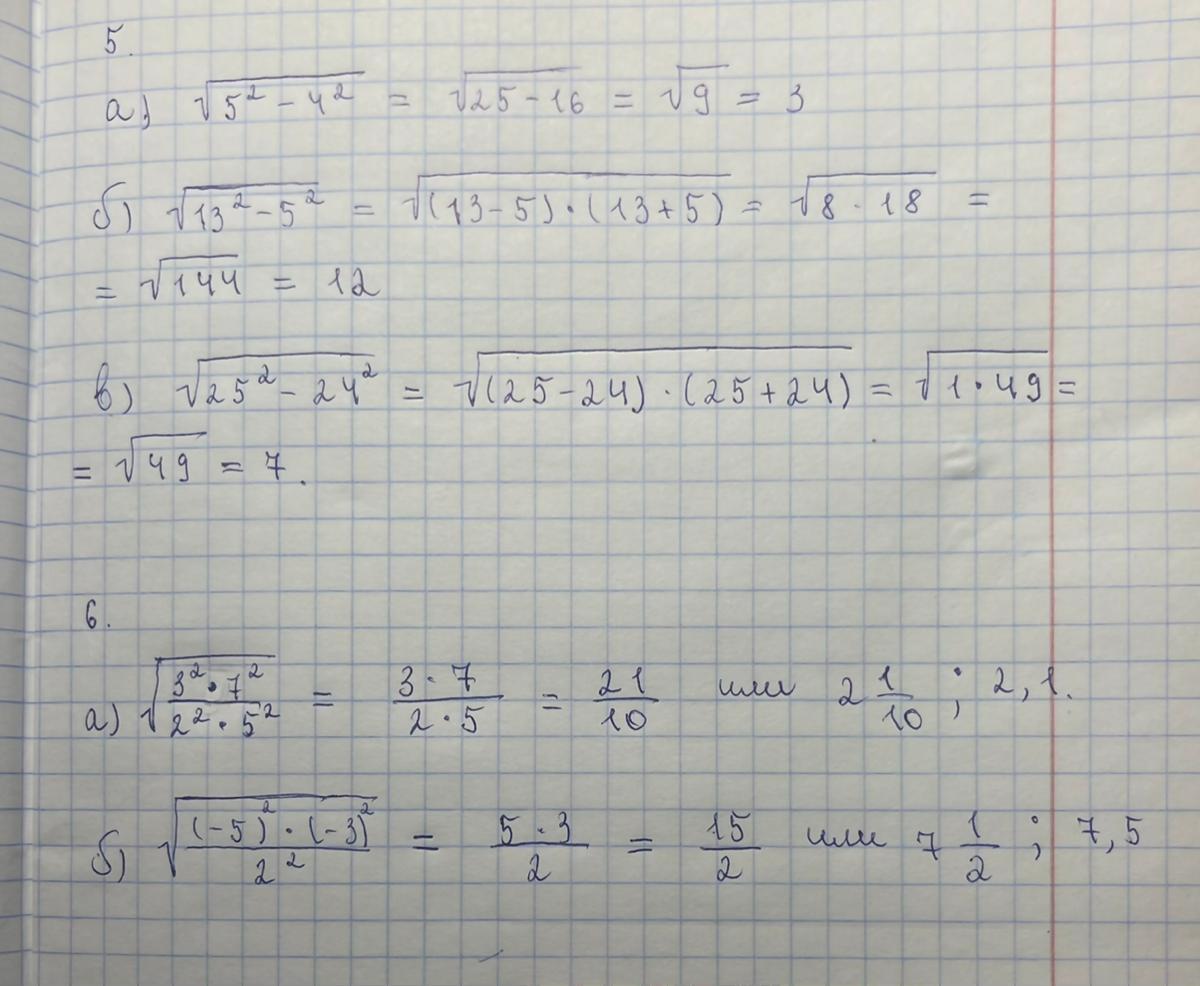 5.
а) √(5² − 4²) = √(25 − 16) = √9 = 3
б) √(13² − 5²) = √((13 − 5) · (13 + 5)) = √(8 · 18) =
= √144 = 12
в) √(25² − 24²) = √((25 − 24) · (25 + 24)) = √(1 · 49) =
= √49 = 7.
6.
а) √((3² · 7²)/(2² · 5²)) = (3 · 7)/(2 · 5) = 21/10 или 2 1/10 ; 2,1.
б) √(((−5)² · (−3)²)/2²) = (5 · 3)/2 = 15/2 или 7 1/2 ; 7,5